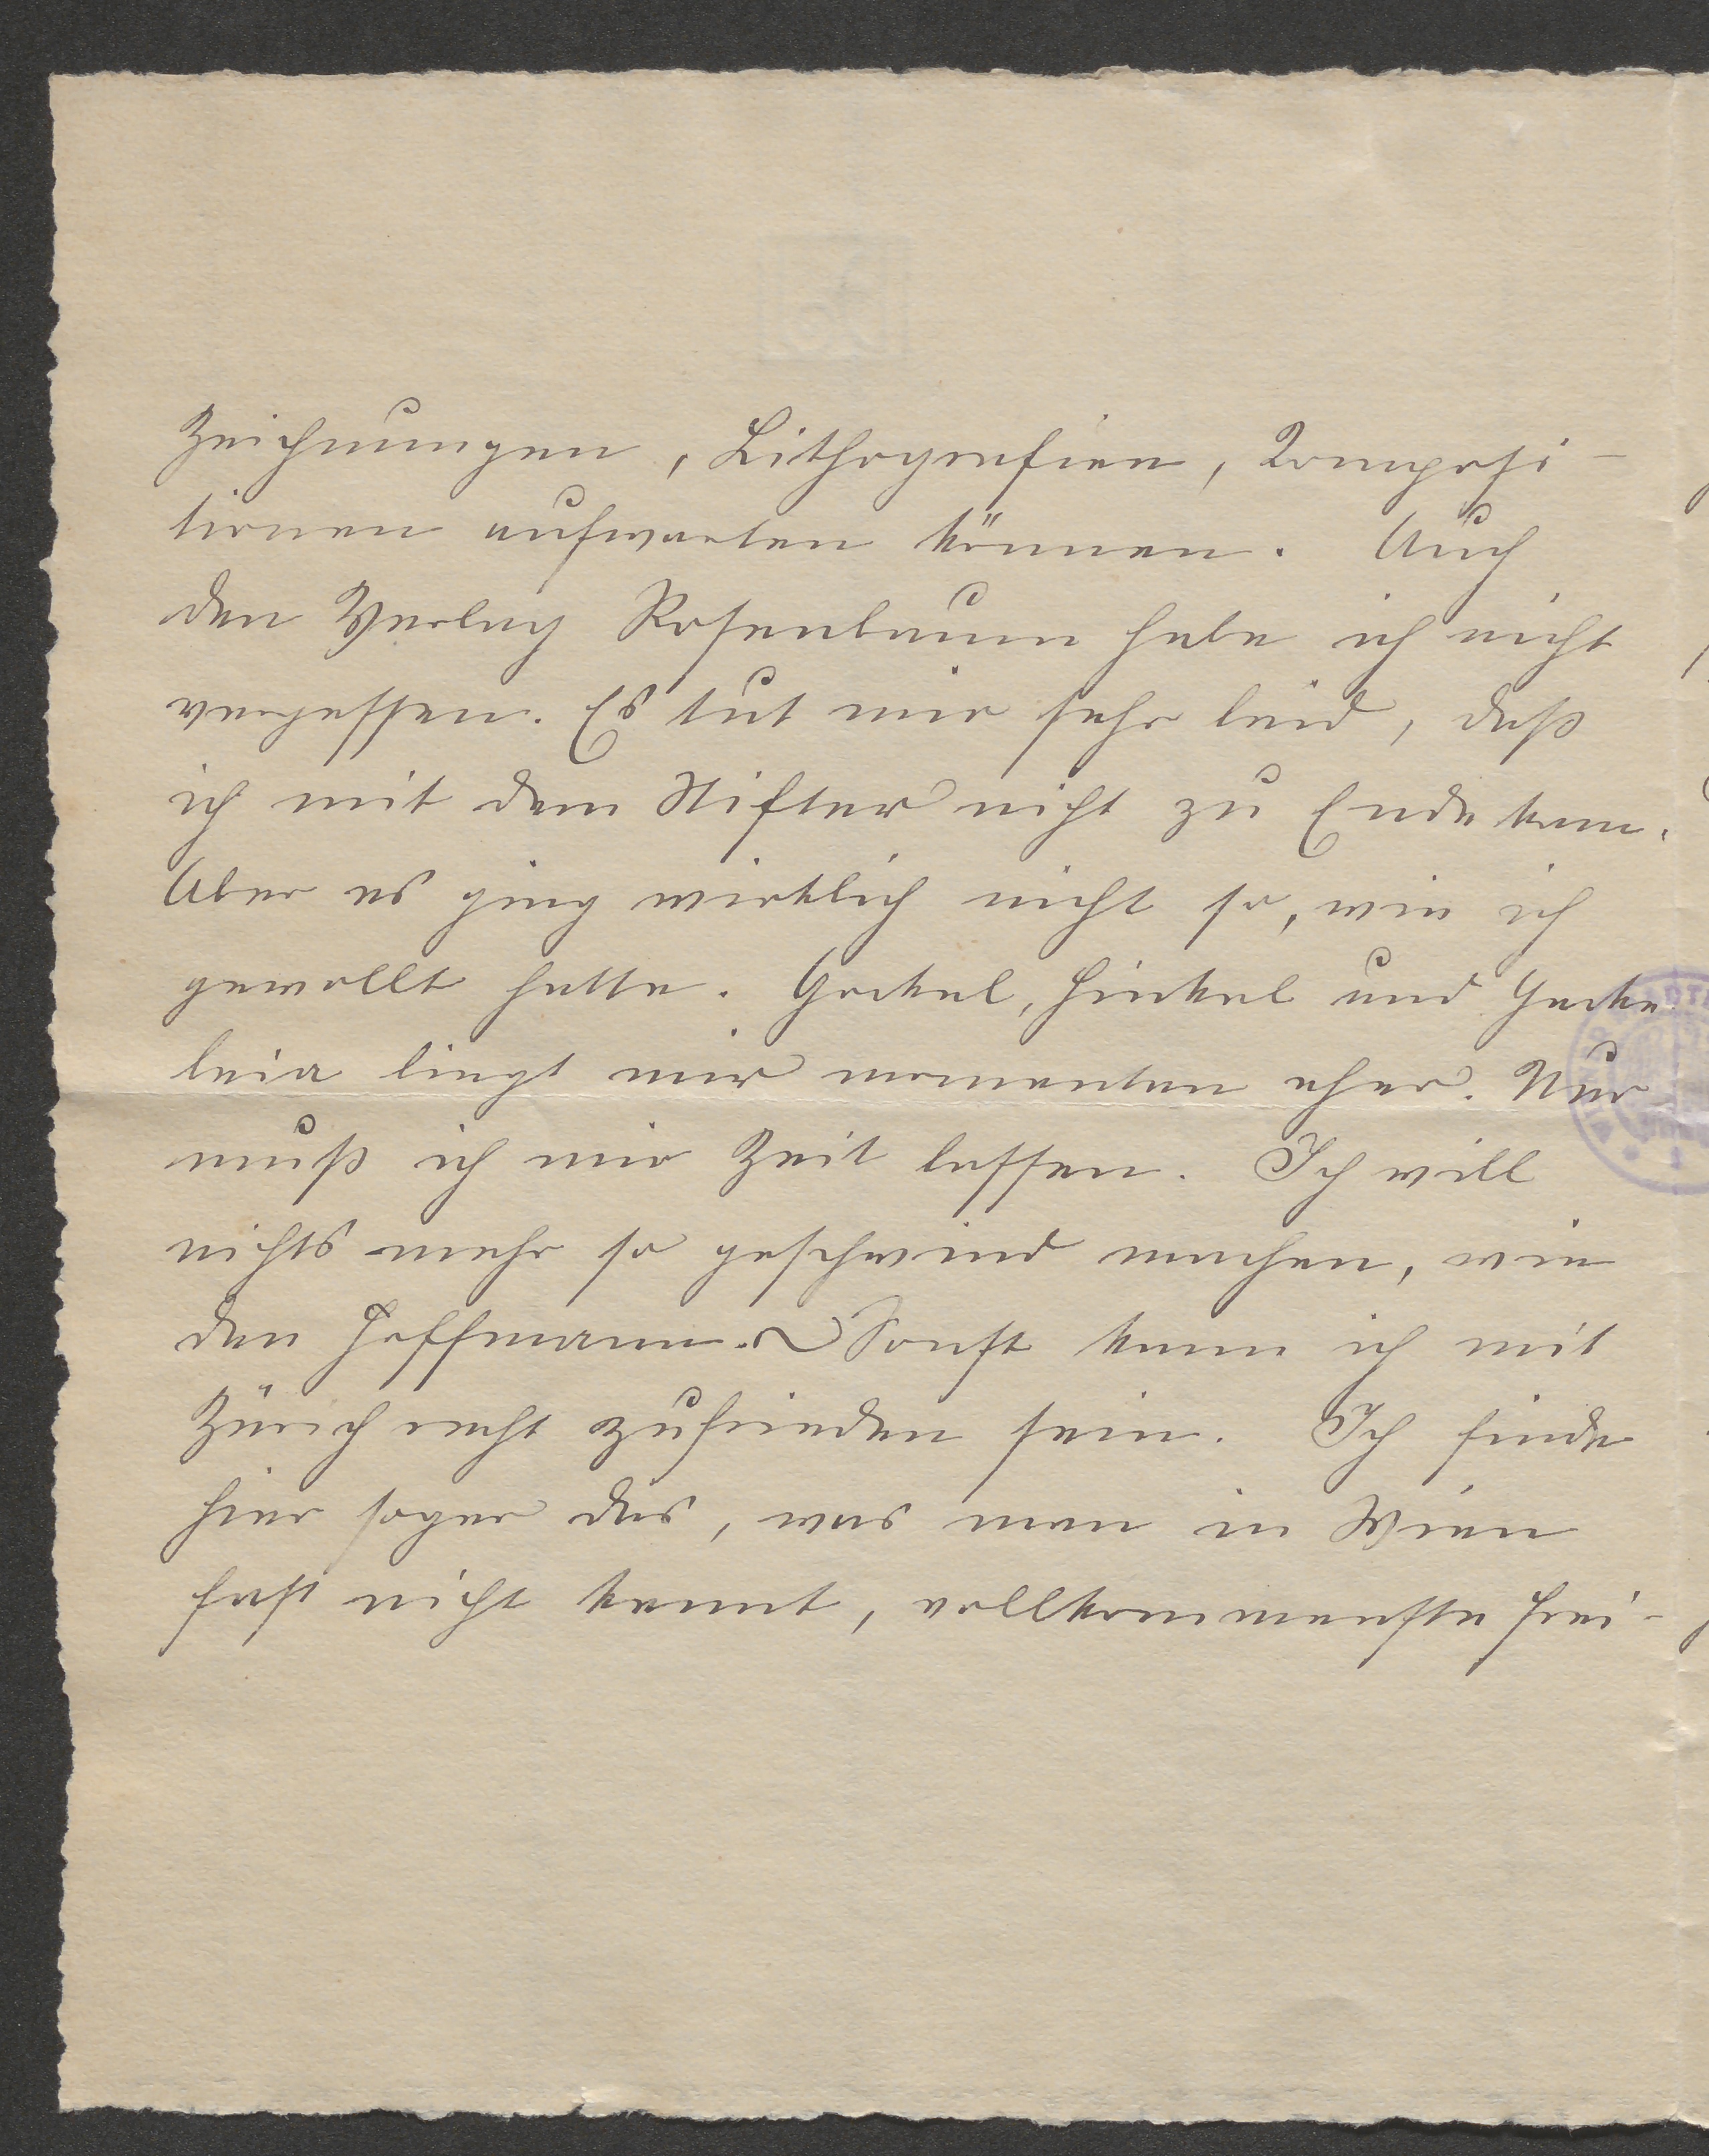 Zeichnungen, Lithografien, Komposi-
tionen aufwarten können. Auch
den Verlag Rosenbaum habe ich nicht
vergessen. Es tut mir sehr leid, daß
ich mit dem Stifter nicht zu Ende kam.
Aber es ging wirklich nicht so, wie ich
gewollt hatte. Gockel, Hinkel und Gacke
leia liegt mir momentan eher. Nur
muß ich mir Zeit lassen. Ich will
nichts mehr so geschwind machen, wie
den Hoffmann. Sonst kann ich mit
Zürich recht zufrieden sein. Ich finde
hier sogar das, was man in Wien
fast nicht kennt, vollkommenste Frei-